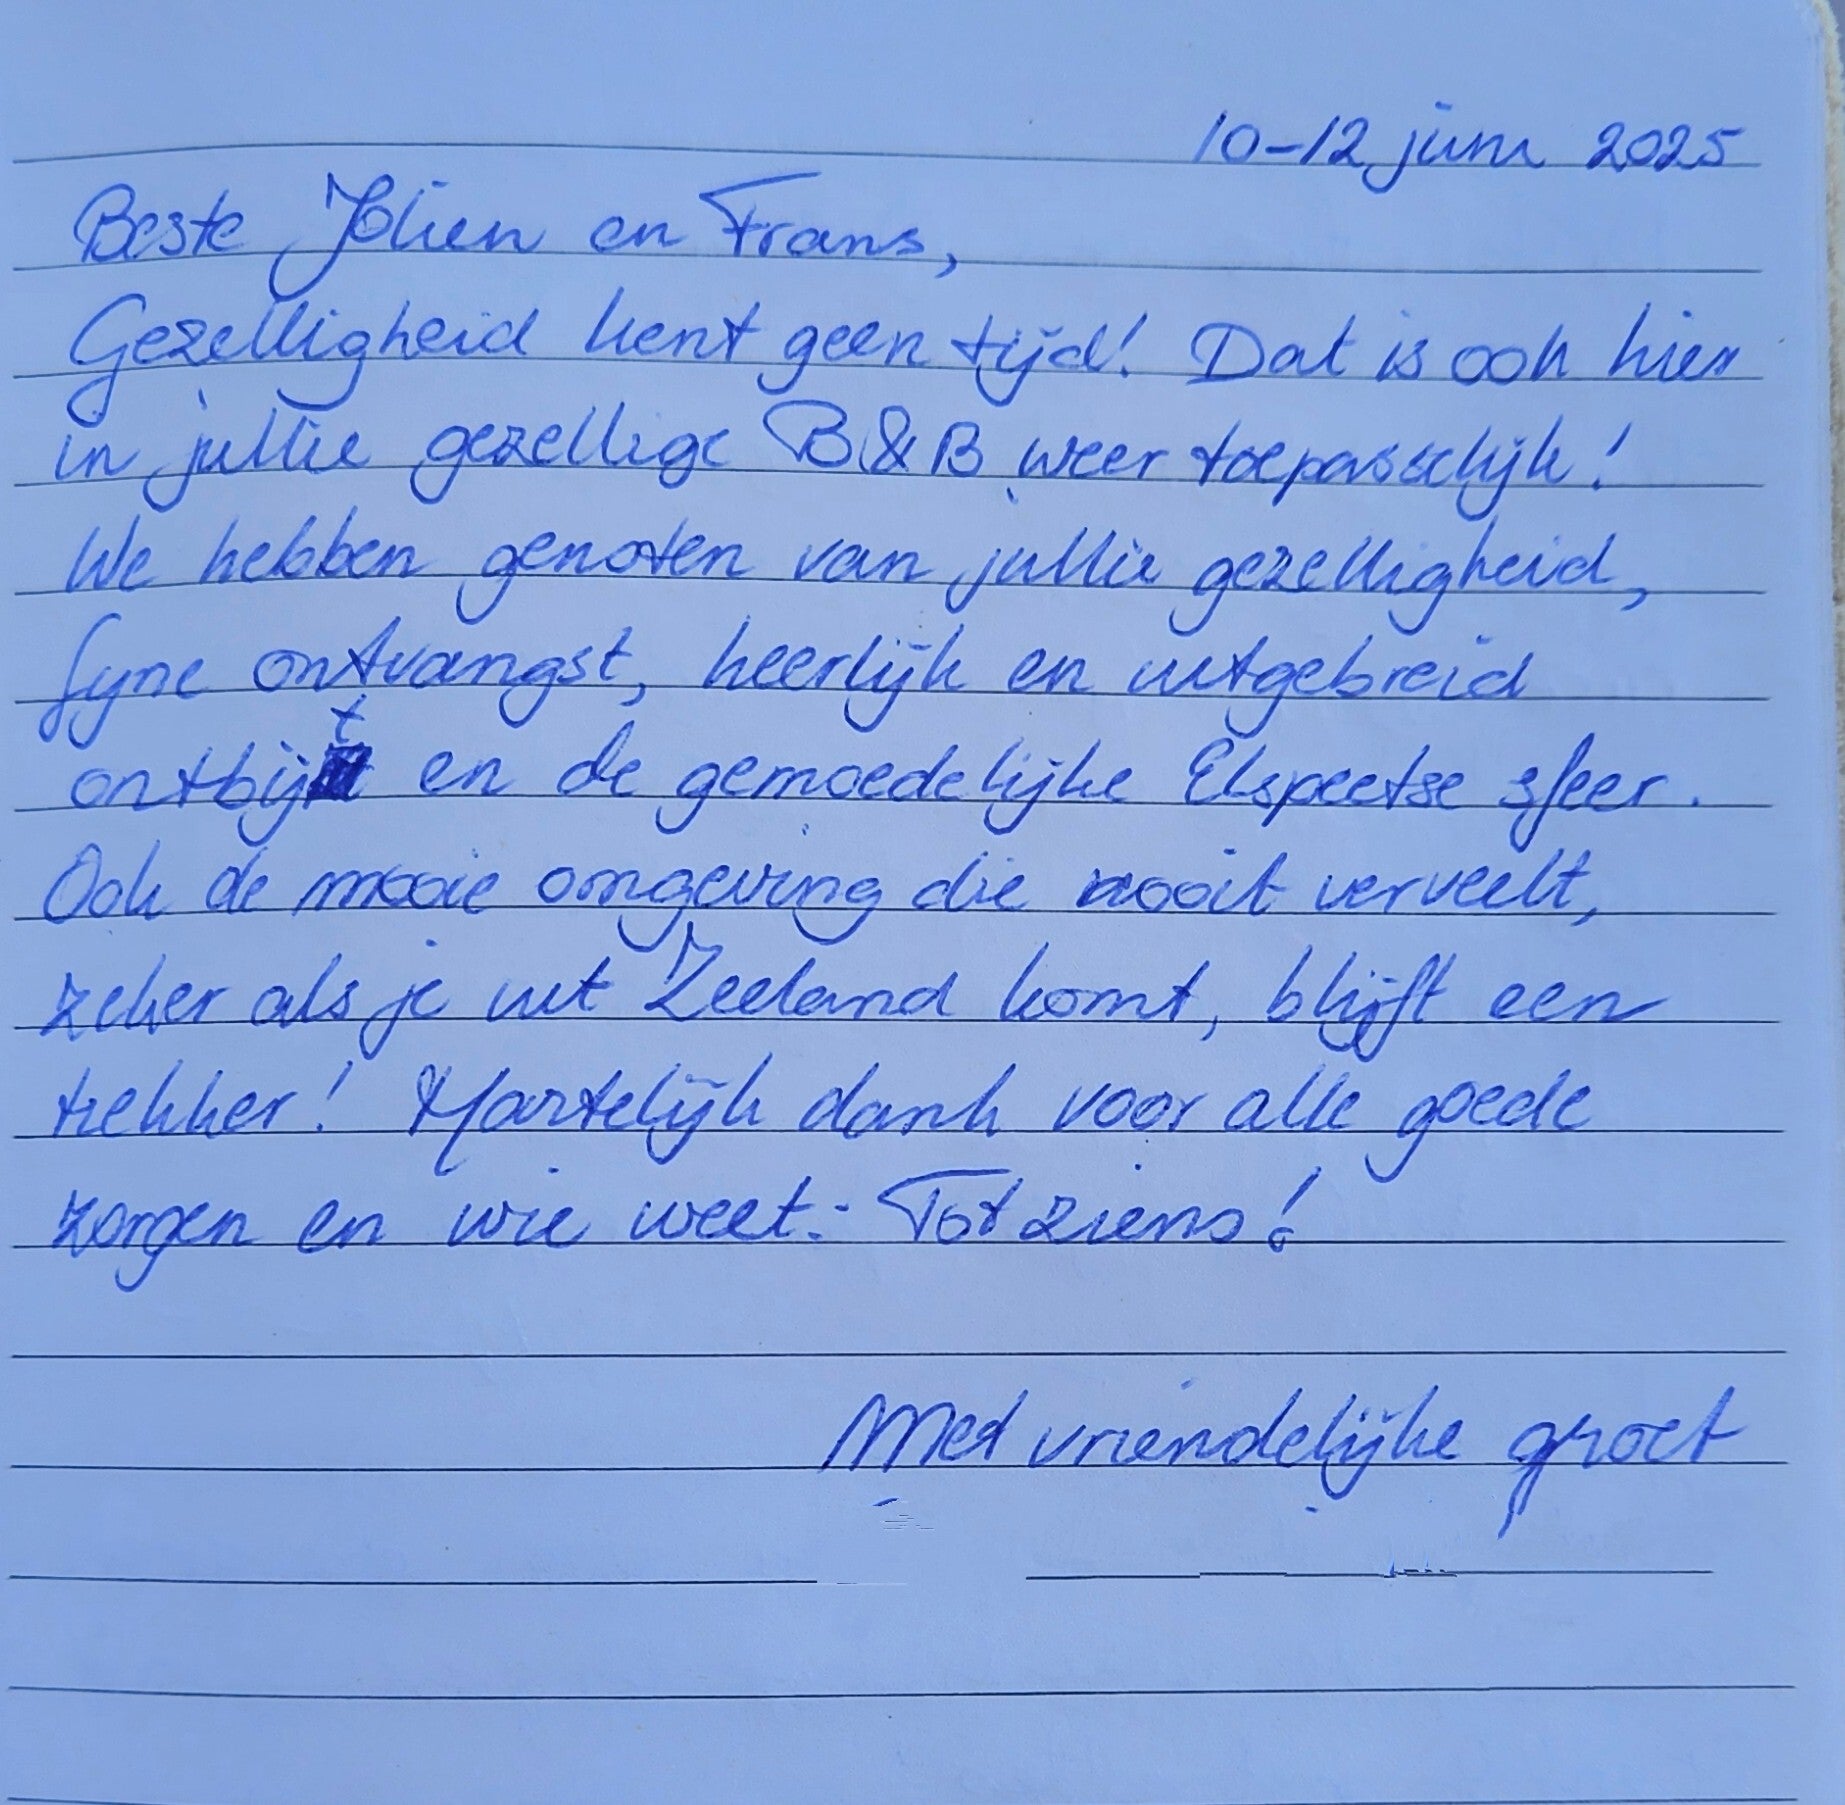 10-12 juni 2025
Beste Jolien en Frans,
Gezelligheid kent geen tijd! Dat is ook hier
in jullie gezellige B&B weer toepasselijk!
We hebben genoten van jullie gezelligheid,
fijne ontvangst, heerlijk en uitgebreid
ontbijt en de gemoedelijke Elspeetse sfeer.
Ook de mooie omgeving die nooit verveelt,
zeker als je uit Zeeland komt, blijft een
trekker! Hartelijk dank voor alle goede
zorgen en wie weet: Tot ziens!
Met vriendelijke groet